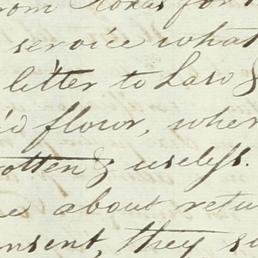 from Texas for
service what
letter to Laso &
flour, wher
rotten & useless.
about retu
nsent, they s